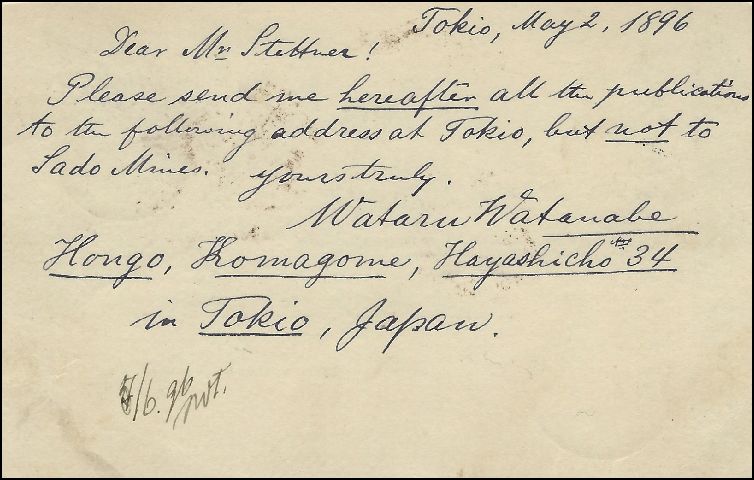 Tokio, May 2, 1896
Dear Mr Stettner!
Please send me hereafter all the publications
to the following address at Tokio, but not to
Sado Mines. yours truly.
Wataru Watanabe
Hongo, Komagome, Hayashicho 34
in Tokio, Japan.
/6. 96